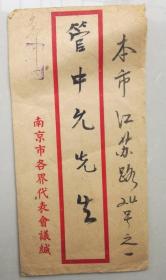 本市江苏路24号之一
管中允先生
南京市各界代表會議緘